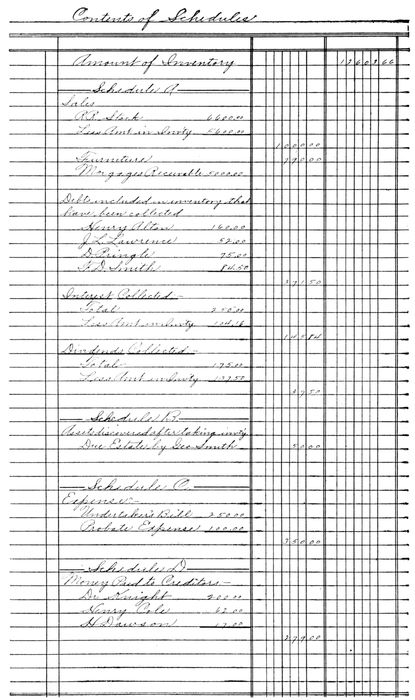 Contents of Schedules
Amount of Inventory 13603.66
Schedule A
Sales
R.R. Stock 6600.00
Less Amt. in Invty 5600.00
1000.00
Furniture 790.00
Morgages Receivable 5000.00
Debts included in inventory that
have been collected
Henry Alton 160.00
J. L. Lawrence 52.00
D. Pringle 75.00
F. D. Smith 84.50
371.50
Interest Collected
Total 250.00
Less Amt. in Invty 104.16
145.84
Dividends Collected
Total 175.00
Less Amt. in Invty 137.50
37.50
Schedule B.
Assets discovered after taking invty
Due Estate by Geo. Smith 50.00
Schedule C.
Expense
Undertaker's Bill 250.00
Probate Expense 100.00
350.00
Schedule D
Money Paid to Creditors
Dr. Knight 200.00
Henry Cole 62.00
H. Dawson 17.00
279.00